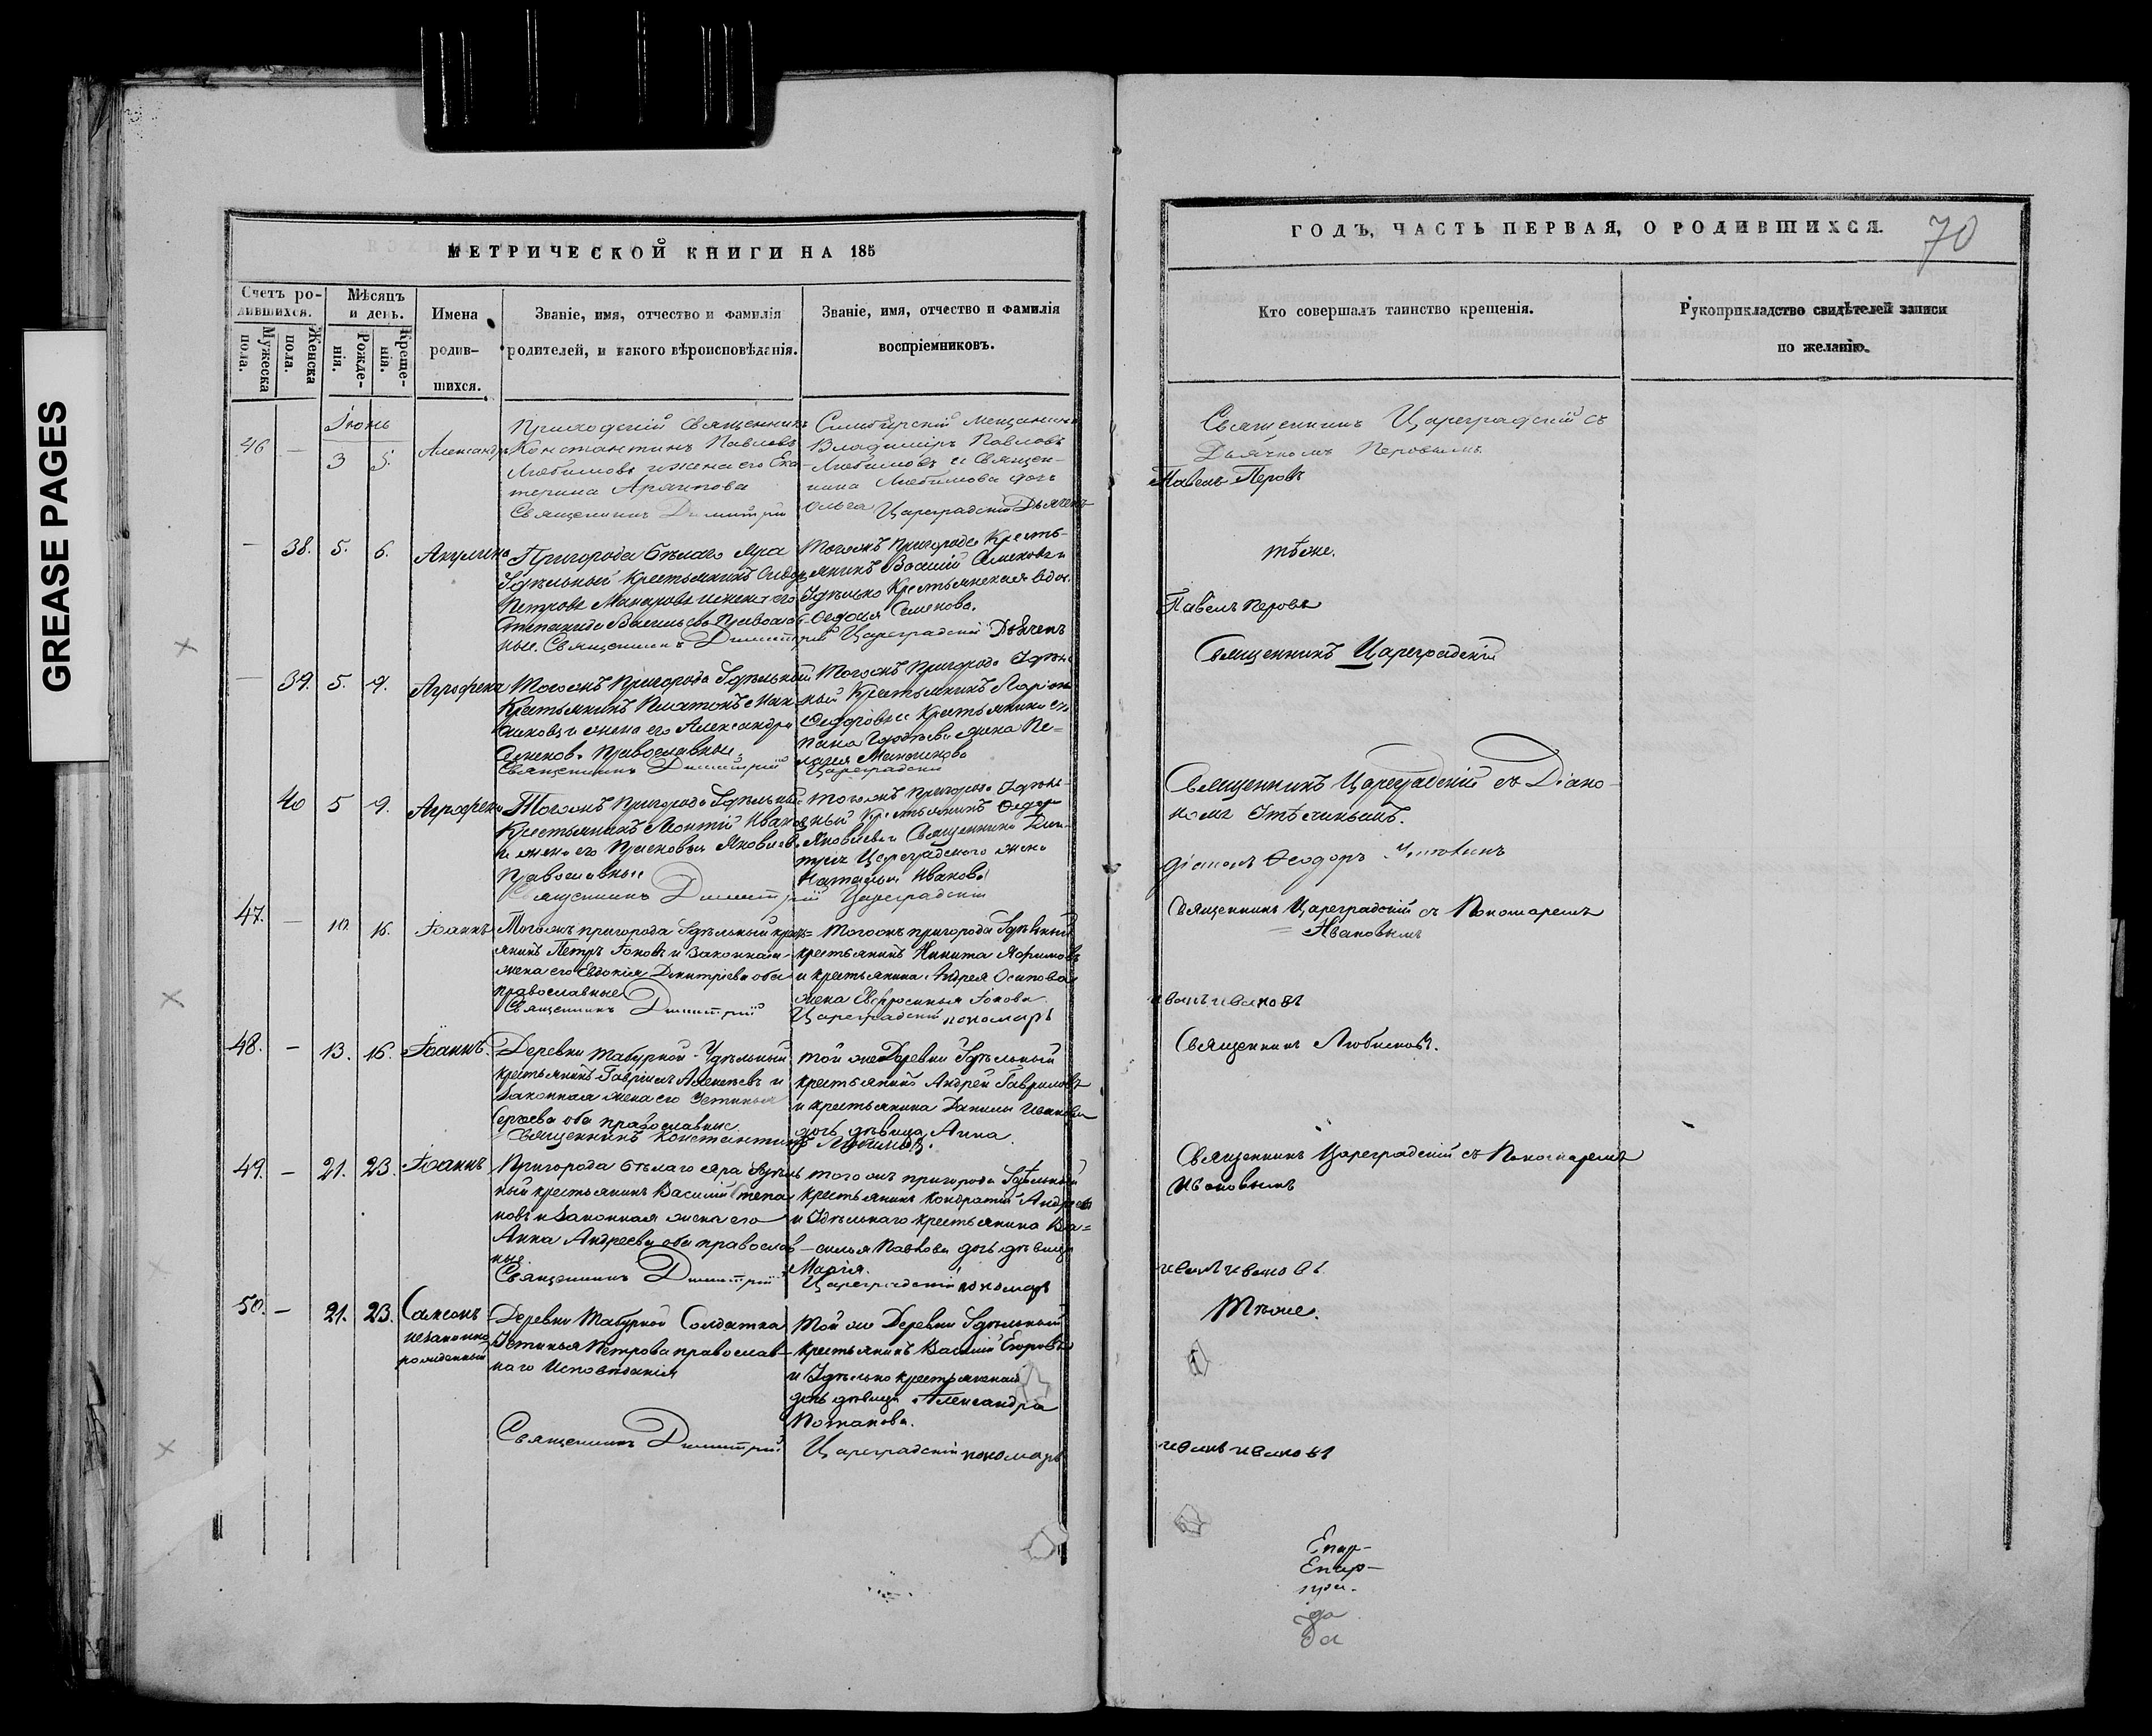 GREASE PAGES
МЕТРИЧЕСКОЙ КНИГИ НА 185
Счетъ ро-
дившихся.
Мужеска
пола.
Женска
пола.
Мѣсяцъ
и день.
Рожде-
нія.
Креще-
нія.
Имена
родив-
шихся.
Званіе, имя, отчество и фамилія
родителей, и какого вѣроисповѣданія.
Званіе, имя, отчество и фамилія
воспріемниковъ.
Іюнь
46 — 3 5. Александръ
Приходскій Священникъ
Константинъ Павловъ
Любимовъ и жена его Ека-
терина
Священникъ Димитрій
Симбирскій Мещанинъ
Владиміръ Павловъ
Любимовъ и Священ-
ника Любимова дочь
Ольга Цареградскій Дьячекъ
— 38. 5. 6. Акулина
Пригорода Бѣлаго Яра
Удѣльный Крестьянинъ
Петровъ Макаровъ и жена его
Степанида Православ-
ные. Священникъ Димитрій
Тогожъ Пригорода Кресть-
янинъ Василій Семеновъ и
Удѣльно Крестьянская вдо.
Федосья Семенова.
Цареградскій Дьячекъ
— 39. 5. 9. Агрофена
Тогожъ Пригорода Удѣльный
Крестьянинъ Платонъ
и жена его Александра
Семенова Православные.
Священникъ Димитрій
Тогожъ Пригорода Удѣль-
ный Крестьянинъ Ларіонъ
Федоровъ и Крестьянина Сте-
пана жена Пе=
лагея
Цареградскій
40 5 9. Агрофена
Тогожъ Пригорода Удѣльный
Крестьянинъ Леонтій Ивановъ
и жена его Прасковья Яковлева
Православные
Священникъ Димитрій
Тогожъ Пригорода Удѣль-
ный Крестьянинъ Федоръ
Яковлевъ и Священника Дми-
трія Цареградскаго жена
Наталья Иванова
Цареградскій
47. — 10. 16. Іоаннъ
Тогожъ пригорода Удѣльный крест=
янинъ Петръ Іоновъ и Законная
жена его Евдокія Димитріева оба
православные
Священникъ Димитрій
Тогожъ пригорода Удѣльный
крестьянинъ Никита
и крестьянина Андрея Осипова
жена Евфросинья Іонова
Цареградскій пономарь
48. — 13. 16. Іоаннъ.
Деревни Табурной Удѣльный
крестьянинъ Гавріилъ Алексѣевъ и
Законная жена его Устинья
Сергѣева оба православные
Священникъ Константинъ Любимовъ.
Той же Деревни Удѣльный
крестьянинъ Андрей Гавриловъ
и крестьянина Данилы Иванова
дочь дѣвица Анна
49. — 21. 23. Іоаннъ
Пригорода Бѣлаго Яра Удѣль
ный крестьянинъ Василій Степа
новъ и Законная жена его
Анна Андреева оба православ—
ные.
Священникъ Димитрій
того жъ пригорода Удѣльный
крестьянинъ Кондратій Андреевъ
и Удѣльнаго крестьянина Ва=
силья Павлова дочь дѣвица
Марія.
Цареградскій пономарь
50. — 21. 23. Самсонъ
незаконно
рожденный
Деревни Табурной Солдатка
Устинья Петрова православ—
наго Исповѣданія
Священникъ Димитрій
Той же Деревни Удѣльный
крестьянинъ Василій Егоровъ
и Удѣльно крестьянская
дочь дѣвица Александра
Потапова.
Цареградскій пономарь
ГОДЪ, ЧАСТЬ ПЕРВАЯ, О РОДИВШИХСЯ.
70
Кто совершалъ таинство крещенія.
Рукоприкладство свидѣтелей записи
по желанію.
Священникъ Цареградскій съ
Дьячкомъ Перовымъ.
Павелъ Перовъ
тѣже.
Павелъ Перовъ
Священникъ Цареградскій
Священникъ Цареградскій съ Діако-
номъ
діаконъ Феодоръ
Священникъ Цареградскій съ Пономаремъ
Ивановымъ
иванъ ивановъ
Священникъ Любимовъ.
Священникъ Цареградскій съ Пономаремъ
Ивановымъ
иванъ ивановъ
Тѣже.
иванъ ивановъ
Епар-
Епар-
при-
да
да